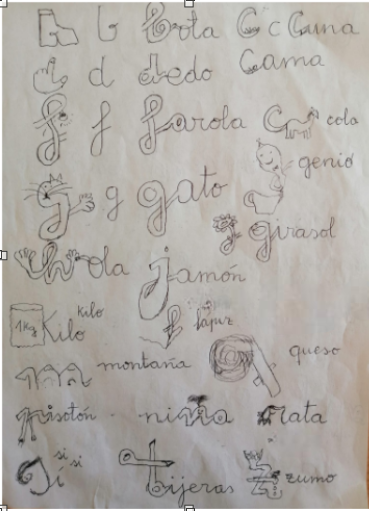 b b bota C c Cuna
Cama
d d dedo
f f farola C cola
genio
g g gato
g girasol
h hola jamón
1Kg Kilo kilo
l lápiz
m montaña q queso
pisotón niña rata
si si
Sí tijeras z zumo